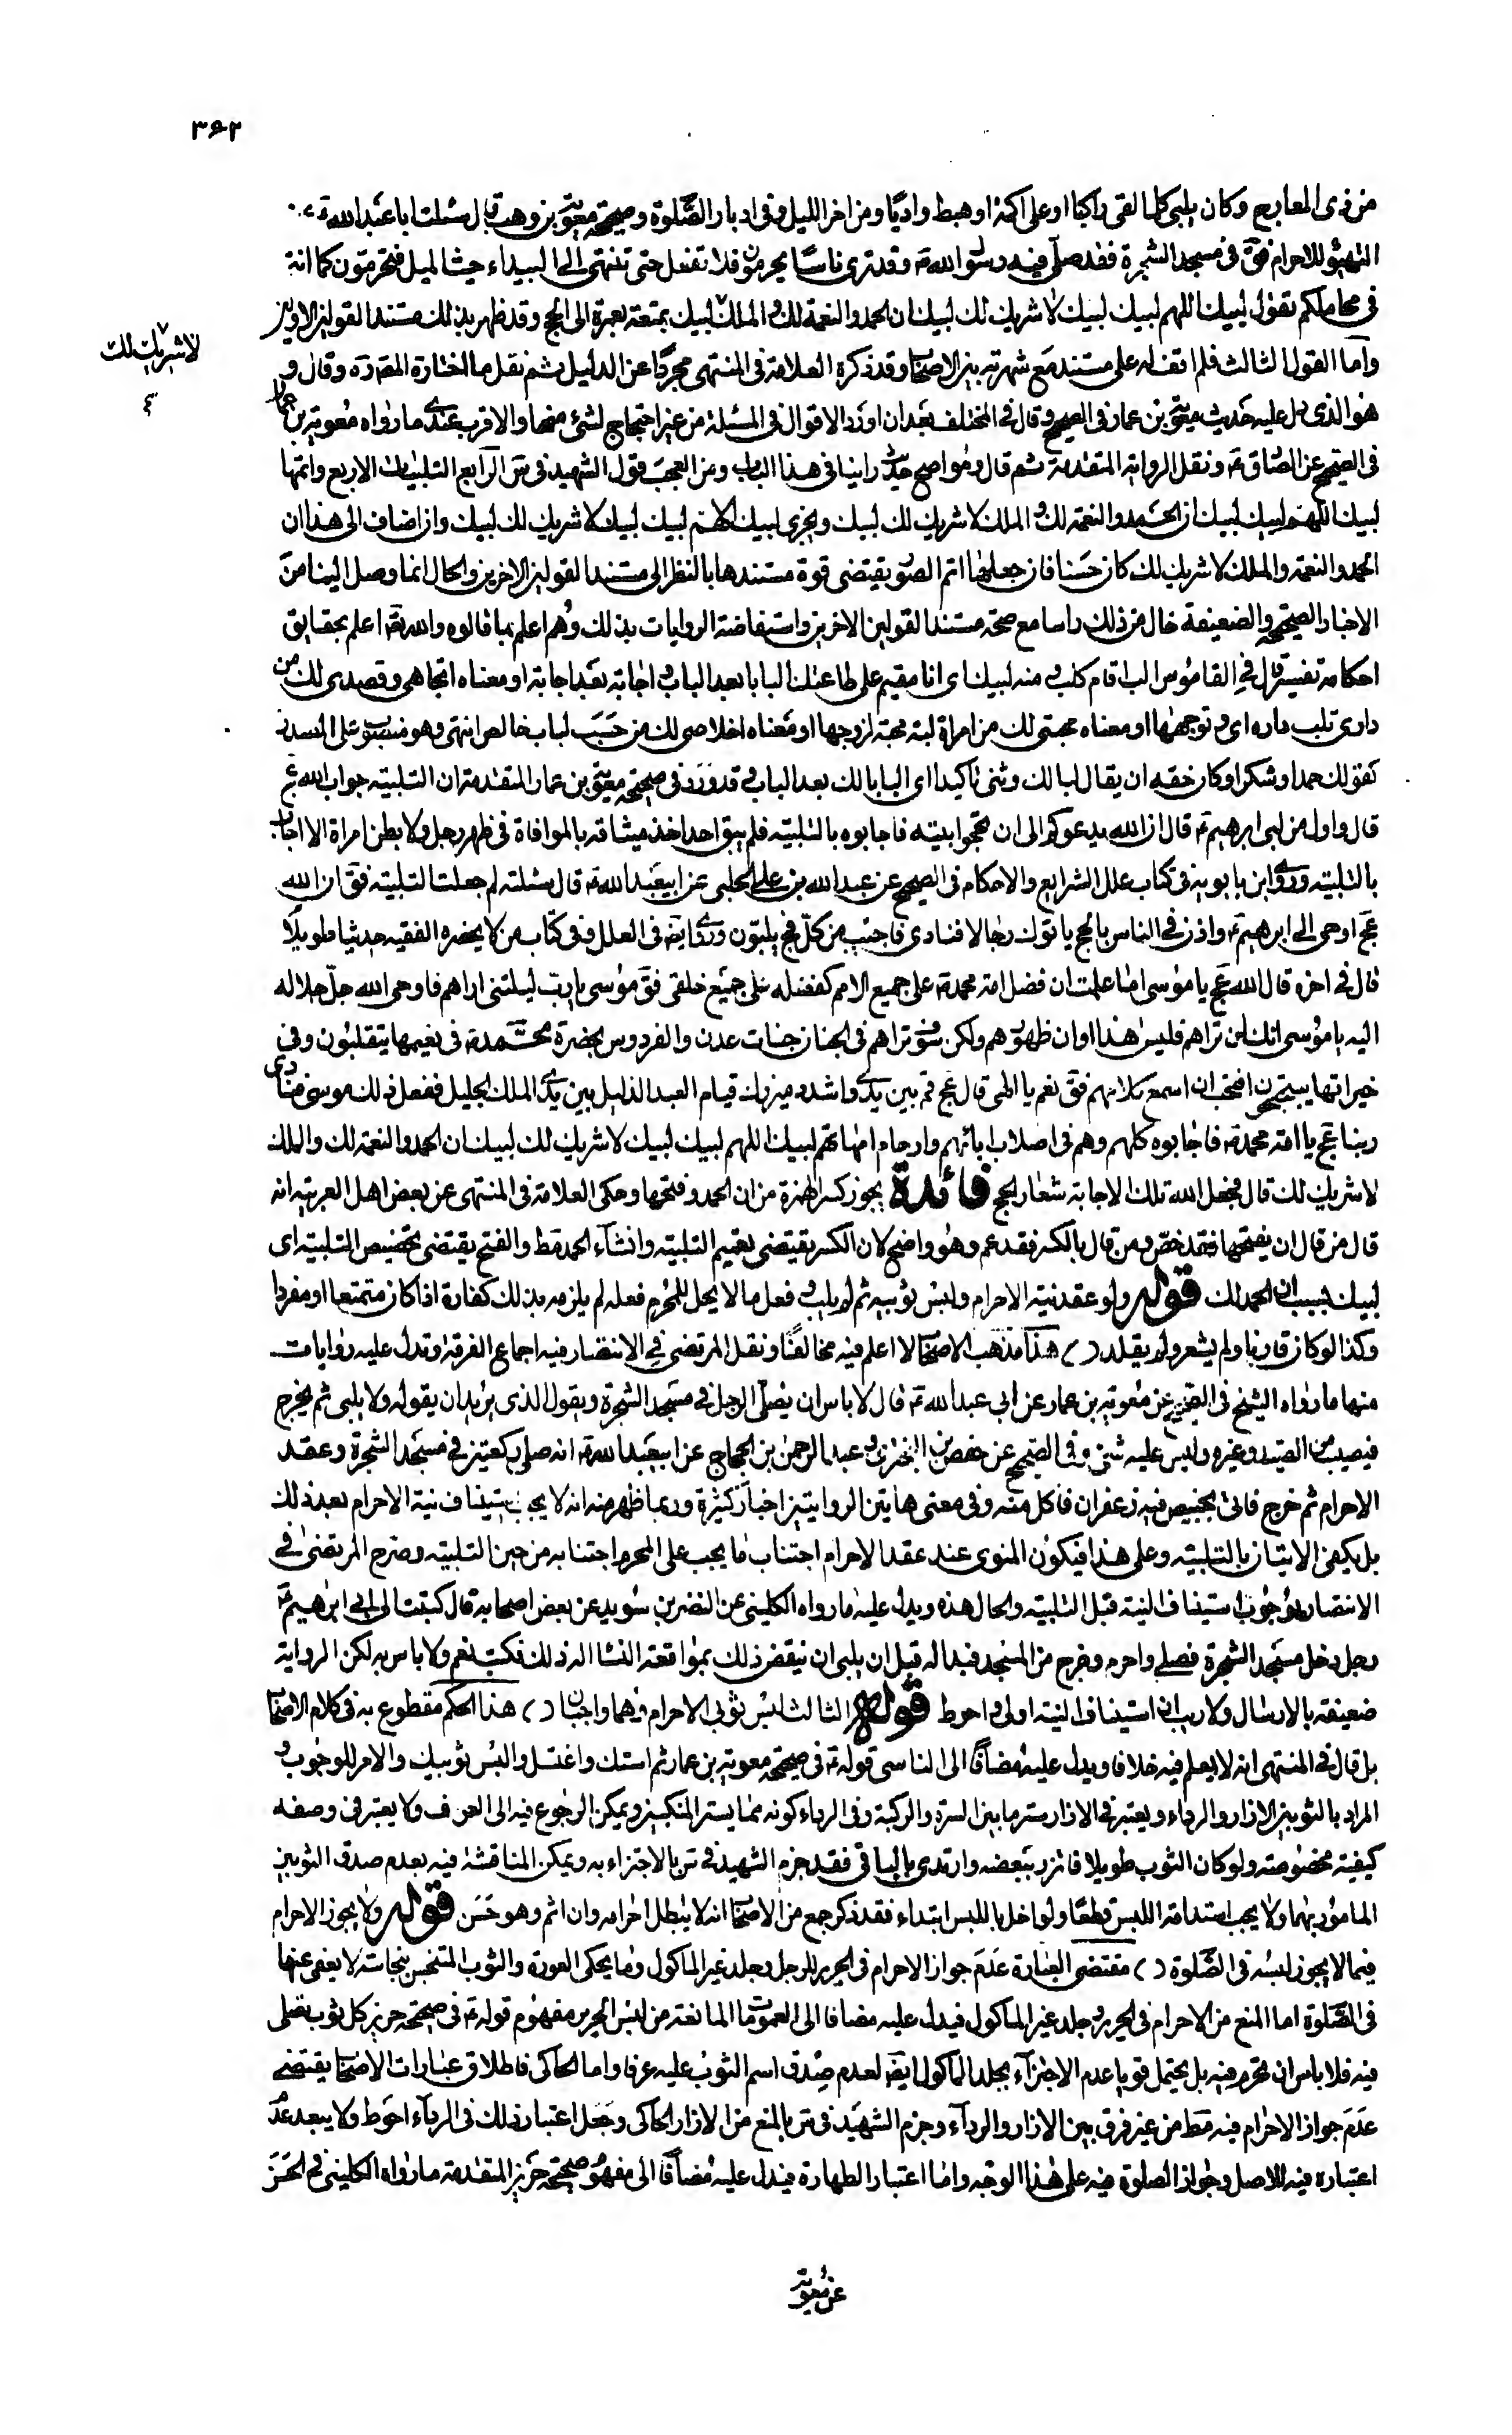 ٣٩٢
من ذى المعارج وكان يلبى كلما لقى راكبا او على اكمة او هبط واديا ومن اخر الليل وفى ادبار الصلوة وصحيحة معوية بن وهب قال سئلت ابا عبد الله ع
التهيؤ للاحرام فق فى مسجد الشجرة فقد صلى فيه رسول الله ص وقد ترى ناسا يحرمون فلا تفعل حتى تنتهى الى البيداء حيث الميل فتحرمون كما انتم
فى محاملكم تقول لبيك اللهم لبيك لبيك لا شريك لك لبيك ان الحمد والنعمة لك والملك لبيك بمتعة بعمرة الى الحج وقد ظهر بذلك مستند القولين الاولين
لا شريك لك
واما القول الثالث فلم اقف له على مستند مع شهرته بين الاصحاب وقد ذكره العلامة فى المنتهى مجردا عن الدليل ثم نقل ما اختاره المص ره وقال و
هو الذى دل عليه حديث معوية بن عمار فى الصحيح وقال فى المختلف بعد ان اورد الاقوال فى المسئلة من غير احتجاج لشئ منها والاقرب عندى ما رواه معوية بن عمار
فى الصحيح عن الصادق ع ونقل الرواية المتقدمة ثم قال وهو اصح حديث راينا فى هذا الباب ومن العجب قول الشهيد فى س الرابع التلبيات الاربع واتمها
لبيك اللهم لبيك لبيك ان الحمد والنعمة لك والملك لا شريك لك لبيك ويجزى لبيك اللهم لبيك لبيك لا شريك لك لبيك وان اضاف الى هذا ان
الحمد والنعمة والملك لا شريك لك كان حسنا فان جعلها اتم الصور يقتضى قوة مستندها بالنظر الى مستند القولين الاخرين والحال انما وصل الينا من
الاخبار الصحيحة والضعيفة خال من ذلك راسا مع صحة مستند القولين الاخرين واستفاضة الروايات بذلك وهم اعلم بما قالوه والله تعا اعلم بحقايق
احكامه تفسير قال فى القاموس الب اقام كلب ومنه لبيك اى انا مقيم على طاعتك البابا بعد الباب واجابة بعد اجابة او معناه اتجاهى وقصدى لك من
دارى تلب داره اى تواجهها او معناه محبتى لك من امراة لبة محبة لزوجها او معناه اخلاصى لك من حسب لباب خالص انتهى وهو منصوب على المصدر
كقولك حمدا وشكرا وكان حقه ان يقال لبا لك وثنى تاكيدا اى البابا لك بعد الباب وقد ورد فى صحيحة معوية بن عمار المتقدمة ان التلبية جواب الله عج
قال واول من لبى ابرهيم ع قال ان الله يدعوكم الى ان تحجوا بيته فاجابوه بالتلبية فلم يبق احد اخذ ميثاقه بالموافاة فى ظهر رجل ولا بطن امراة الا اجاب
بالتلبية وروى ابن بابويه فى كتاب علل الشرايع والاحكام فى الصحيح عن عبيد الله بن على الحلبى عن ابيعبد الله ع قال سئلته لم جعلت التلبية فق ان الله
عج اوحى الى ابرهيم ع واذن فى الناس بالحج ياتوك رجالا فنادى فاجيب من كل فج يلبون وروى ايض فى العلل وفى كتاب من لا يحضره الفقيه حديثا طويلا
قال فى اخره قال الله عج يا موسى اما علمت ان فضل امة محمد ص على جميع الامم كفضله على جميع خلقى فق موسى يا رب ليتنى اراهم فاوحى الله جل جلاله
اليه يا موسى انك لن تراهم فليس هذا اوان ظهورهم ولكن سوف تراهم فى الجنان جنات عدن والفردوس بحضرة محمد ص فى نعيمها يتقلبون وفى
خيراتها يتبجحون افتحب ان اسمع كلامهم فق نعم يا الهى قال عج قم بين يدى واشدد ميزرك قيام العبد الذليل بين يدى الملك الجليل ففعل ذلك موسى فنادى
ربنا عج يا امة محمد ص فاجابوه كلهم وهم فى اصلاب ابائهم وارحام امهاتهم لبيك اللهم لبيك لبيك لا شريك لك لبيك ان الحمد والنعمة لك والملك
لا شريك لك قال فجعل الله تلك الاجابة شعار الحج فائدة يجوز كسر الهمزة من ان الحمد وفتحها وحكى العلامة فى المنتهى عن بعض اهل العربية انه
قال من قال ان بفتحها فقد خص ومن قال بالكسر فقد عم وهو واضح لان الكسر يقتضى تعميم التلبية وانشاء الحمد مط والفتح يقتضى تخصيص التلبية اى
لبيك بسبب ان الحمد لك قوله ولو عقد نية الاحرام ولبس ثوبيه ثم لم يلب وفعل ما لا يحل للمحرم فعله لم يلزمه بذلك كفارة اذا كان متمتعا او مفردا
وكذا لو كان قارنا ولم يشعر ولم يقلد ( ) هذا مذهب الاصحاب لا اعلم فيه مخالفا ونقل المرتضى فى الانتصار فيه اجماع الفرقة وتدل عليه روايات
منها ما رواه الشيخ فى الصحيح عن معوية بن عمار عن ابى عبد الله ع قال لا باس ان يصلى الرجل فى مسجد الشجرة ويقول الذى يريد ان يقوله ولا يلبى ثم يخرج
فيصيب من الصيد وغيره وليس عليه شئ وفى الصحيح عن حفص بن البخترى وعبد الرحمن بن الحجاج عن ابيعبد الله ع انه صلى ركعتين فى مسجد الشجرة وعقد
الاحرام ثم خرج فاتى بخبيص فيه زعفران فاكل منه وفى معنى هاتين الروايتين اخبار كثيرة وربما ظهر منه انه لا يجب استيناف نية الاحرام بعد ذلك
بل يكفى الاتيان بالتلبية وعلى هذا فيكون المنوى عند عقد الاحرام اجتناب ما يجب على المحرم اجتنابه من حين التلبية وصرح المرتضى فى
الانتصار بوجوب استيناف النية قبل التلبية والحال هذه ويدل عليه ما رواه الكلينى عن النضر بن سويد عن بعض اصحابه قال كتبت الى ابى ابرهيم ع
رجل دخل مسجد الشجرة فصلى واحرم وخرج من المسجد فبدا له قبل ان يلبى ان ينقض ذلك بمواقعة النساء اله ذلك فكتب نعم ولا باس به لكن الرواية
ضعيفة بالارسال ولا ريب ان استيناف النية اولى واحوط قوله الثالث لبس ثوبى الاحرام وهما واجبان ( ) هذا الحكم مقطوع به فى كلام الاصحاب
بل قال فى المنتهى انه لا يعلم فيه خلافا ويدل عليه مضافا الى التاسى قوله ع فى صحيحة معوية بن عمار ثم استك واغتسل والبس ثوبيك والامر للوجوب و
المراد بالثوبين الازار والرداء ويعتبر فى الازار ستر ما بين السرة والركبة وفى الرداء كونه مما يستر المنكبين ويمكن الرجوع فيه الى العرف ولا يعتبر فى وضعه
كيفية مخصوصة ولو كان الثوب طويلا فاتزر ببعضه وارتدى بالباقى فقد جزم الشهيد فى س بالاجتزاء به ويمكن المناقشة فيه بعدم صدق الثوبين
المامور بهما ولا يجب استدامة اللبس قطعا ولو اخل باللبس ابتداء فقد ذكر جمع من الاصحاب انه لا يبطل احرامه وان اثم وهو حسن قوله ولا يجوز الاحرام
فيما لا يجوز لبسه فى الصلوة ( ) مقتضى العبارة عدم جواز الاحرام فى الحرير للرجل وجلد غير الماكول وما يحكى العورة والثوب المتنجس بنجاسة لا يعفى عنها
فى الصلوة اما المنع من الاحرام فى الحرير وجلد غير الماكول فيدل عليه مضافا الى العمومات المانعة من لبس الحرير مفهوم قوله ع فى صحيحة حريز كل ثوب يصلى
فيه فلا باس ان تحرم فيه بل يحتمل قويا عدم الاجتزاء بجلد الماكول ايض لعدم صدق اسم الثوب عليه عرفا واما الحاكى فاطلاق عبارات الاصحاب يقتضى
عدم جواز الاحرام فيه مط من غير فرق بين الازار والرداء وجزم الشهيد فى س بالمنع من الازار الحاكى وجعل اعتبار ذلك فى الرداء احوط ولا يبعد عدم
اعتباره فيه للاصل وجواز الصلوة فيه على هذا الوجه واما اعتبار الطهارة فيدل عليه مضافا الى مفهوم صحيحة حريز المتقدمة ما رواه الكلينى فى الحسن
عن معوية